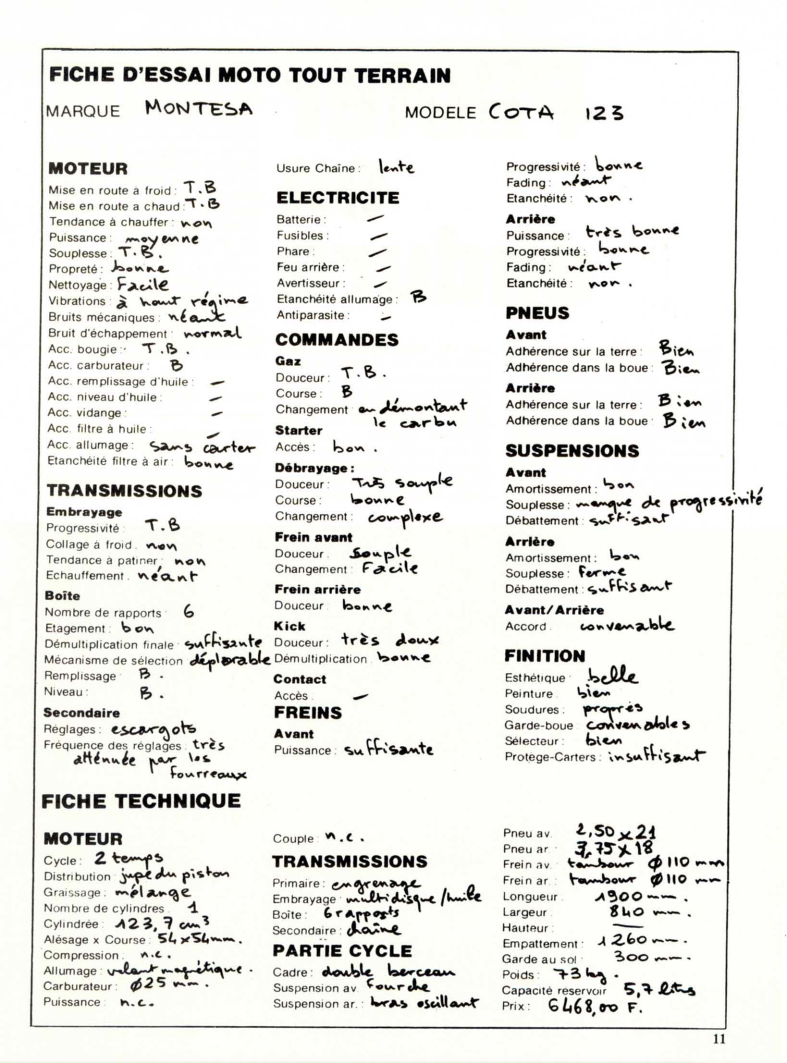 FICHE D'ESSAI MOTO TOUT TERRAIN
MARQUE MONTESA MODELE COTA 123
MOTEUR
Mise en route a froid : T.B
Mise en route a chaud : T.B
Tendance à chauffer : non
Puissance : moyenne
Souplesse : T.B.
Propreté : bonne
Nettoyage : Facile
Vibrations : à haut régime
Bruits mécaniques : néant
Bruit d'échappement : normal
Acc. bougie : T.B.
Acc. carburateur : B
Acc. remplissage d'huile : —
Acc. niveau d'huile : —
Acc. vidange : —
Acc. filtre à huile : —
Acc. allumage : sans carter
Etanchéité filtre à air : bonne
TRANSMISSIONS
Embrayage
Progressivité : T.B
Collage à froid : non
Tendance à patiner : non
Echauffement : néant
Boîte
Nombre de rapports : 6
Etagement : bon
Démultiplication finale : suffisante
Mécanisme de sélection déplorable
Remplissage : B.
Niveau : B.
Secondaire
Réglages : escargots
Fréquence des réglages : très
atténuée par les
fourreaux
Usure Chaîne : lente
ELECTRICITE
Batterie : —
Fusibles : —
Phare : —
Feu arrière : —
Avertisseur : —
Etanchéité allumage : B
Antiparasite : —
COMMANDES
Gaz
Douceur : T.B.
Course : B
Changement en démontant
le carbu
Starter
Accès : bon.
Débrayage :
Douceur : Très souple
Course : bonne
Changement : complexe
Frein avant
Douceur : Souple
Changement : Facile
Frein arrière
Douceur : bonne
Kick
Douceur : très doux
Démultiplication : bonne
Contact
Accès : —
FREINS
Avant
Puissance : suffisante
Progressivité : bonne
Fading : néant
Etanchéité : non.
Arrière
Puissance : très bonne
Progressivité : bonne
Fading : néant
Etanchéité : non.
PNEUS
Avant
Adhérence sur la terre : Bien
Adhérence dans la boue : Bien
Arrière
Adhérence sur la terre : Bien
Adhérence dans la boue : Bien
SUSPENSIONS
Avant
Amortissement : bon
Souplesse : manque de progressivité
Débattement : suffisant
Arrière
Amortissement : bon
Souplesse : ferme
Débattement : suffisant
Avant/Arrière
Accord : convenable
FINITION
Esthétique : belle
Peinture : bien
Soudures : propres
Garde-boue : convenables
Sélecteur : bien
Protège-Carters : insuffisant
FICHE TECHNIQUE
MOTEUR
Cycle : 2 temps
Distribution : jupe du piston
Graissage : mélange
Nombre de cylindres : 1
Cylindrée : 123,7 cm³
Alésage x Course : 54 x 54 mm.
Compression : n.c.
Allumage : volant magnétique.
Carburateur : Ø25 mm.
Puissance : n.c.
Couple : n.c.
TRANSMISSIONS
Primaire : engrenage
Embrayage : multidisque/huile
Boîte : 6 rapports
Secondaire : chaîne
PARTIE CYCLE
Cadre : double berceau
Suspension av. Fourche
Suspension ar. : bras oscillant
Pneu av. 2,50 x 21
Pneu ar. 3,75 x 18
Frein av. tambour Ø 110 mm
Frein ar. : tambour Ø 110 mm
Longueur : 1900 mm.
Largeur : 840 mm.
Hauteur : —
Empattement : 1260 mm.
Garde au sol : 300 mm.
Poids : 73 kg.
Capacité reservoir : 5,7 litres
Prix : 6468,00 F.
11